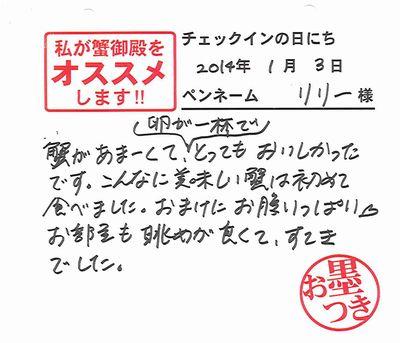 私が蟹御殿を
オススメ
します!!
チェックインの日にち
2014年 1月 3日
ペンネーム リリー様
卵が一杯で
蟹があまーくて、とっても おいしかった
です。こんなに美味しい蟹は初めて
食べました。おまけに お腹いっぱい
お部屋も眺めが良くて、すてき
でした。
お墨つき